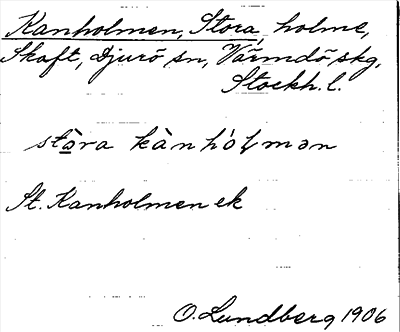 Kanholmen, Stora, holme,
Skaft, Djurö sn, Värmdö skg,
Stockh. l.
stòra kànhólmən
St. Kanholmen ek
O. Lundberg 1906